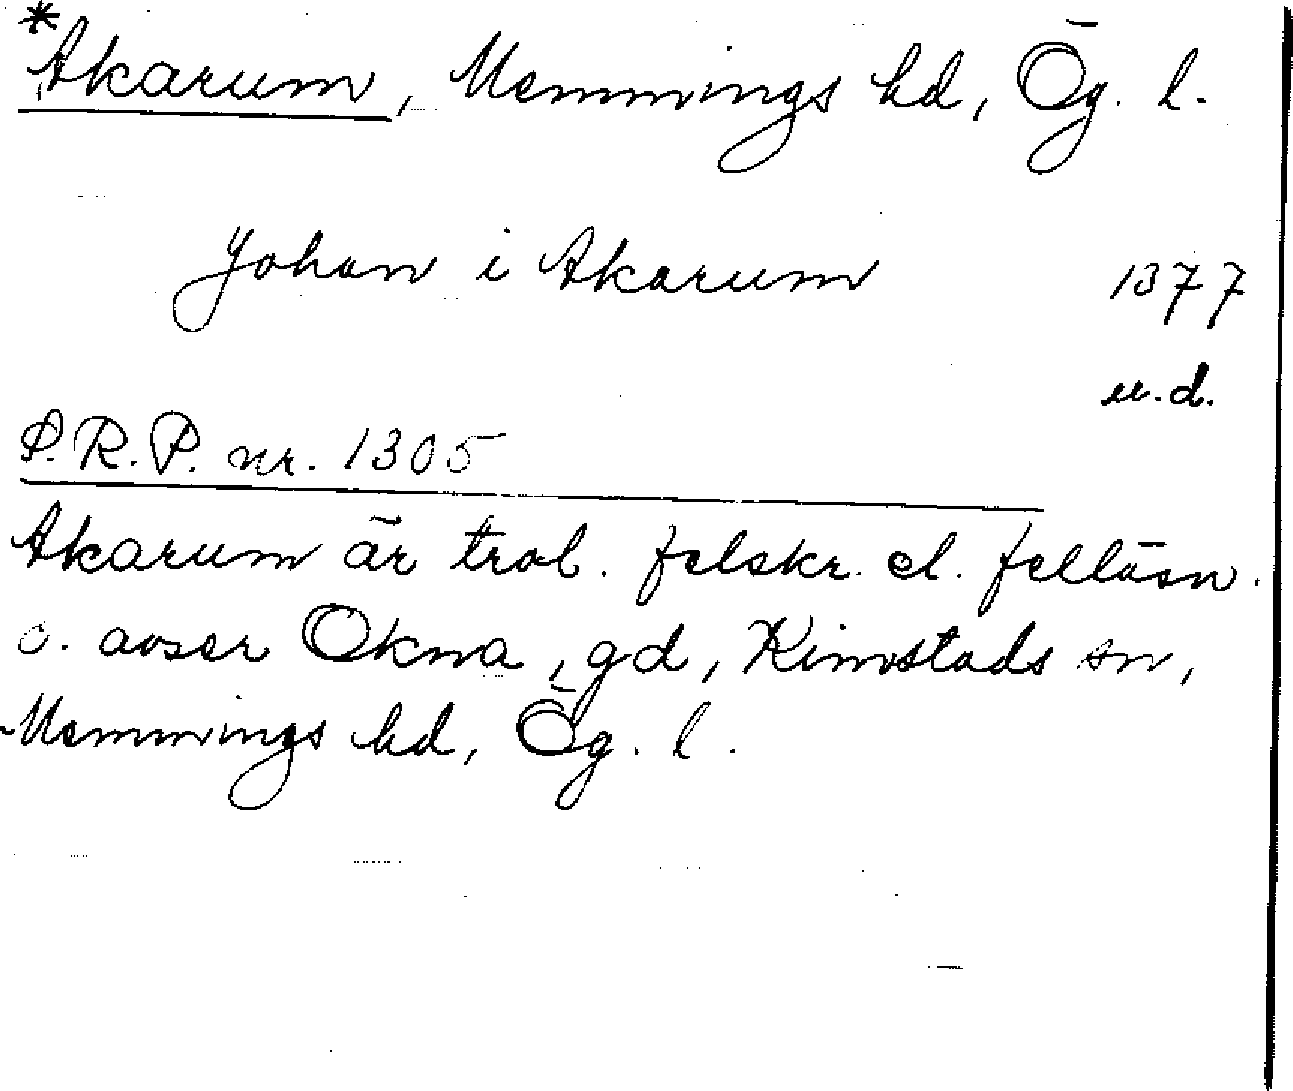 *Akarum, Memmings hd, Ög. l.
Johan i Akarum 1377
u.d.
P.R.P. nr. 1305
Akarum är trol. felskr. el. felläsn.
o. avser Okna, gd, Kimstads sn,
Memmings hd, Ög. l.